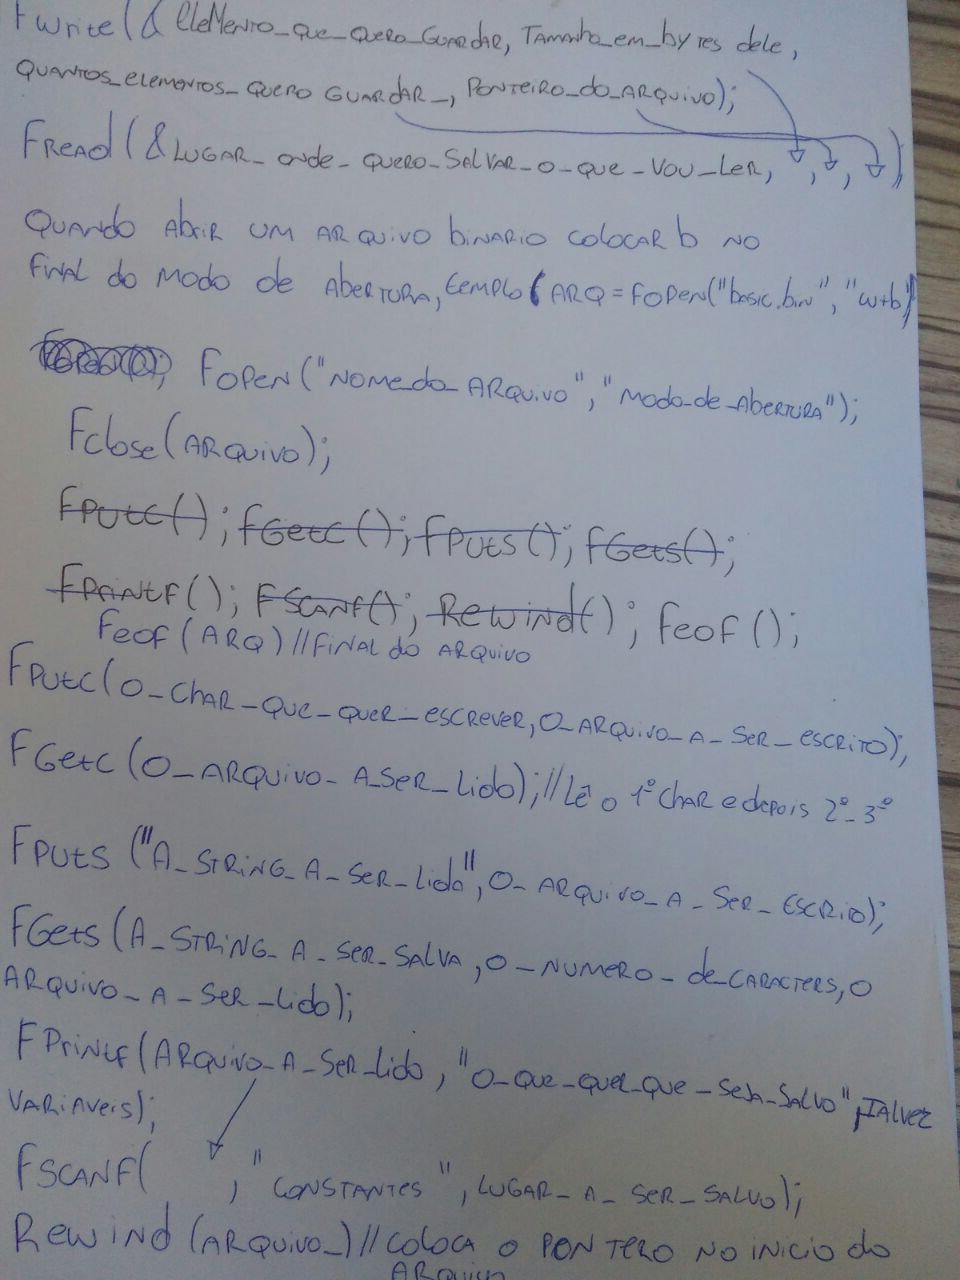 Fwrite(& eleMento_que_quero_Guardar, Tamanho_em_bytes dele,
quantos_elementos_quero Guardar_, Ponteiro_do_arquivo);
Fread (& Lugar_onde_quero_Salvar_o_que_vou_Ler, , , )
Quando abrir um arquivo binario colocar b no
final do modo de abertura, exemplo (ARQ = fopen("basic.bin", "w+b")
Fopen ("Nome_do_arquivo", "modo_de_abertura");
Fclose (arquivo);
Fputc(); fGetc(); fputs(); fGets();
Fprintf(); Fscanf(); Rewind(); feof();
Feof (ARQ) //final do arquivo
Fputc (o_char_que_quer_escrever, o_arquivo_a_ser_escrito);
FGetc (o_arquivo_a_ser_lido); //Lê o 1º char e depois 2º_3º
Fputs ("A_string_a_ser_lida", o_arquivo_a_ser_escrio);
FGets (A_string_a_ser_salva, o_numero_de_caracters, o
arquivo_a_ser_lido);
FPrintf (arquivo_a_ser_lido, "o_que_quer_que_seja_salvo", Talvez
variaveis);
Fscanf( , "constantes", lugar_a_ser_salvo);
Rewind (arquivo_) //coloca o pontero no inicio do
arquivo